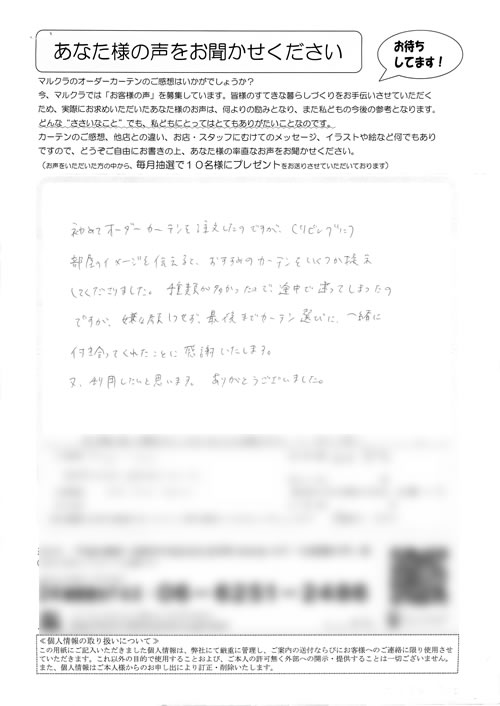 あなた様の声をお聞かせください
お待ち
してます！
マルクラのオーダーカーテンのご感想はいかがでしょうか？
今、マルクラでは「お客様の声」を募集しています。皆様のすてきな暮らしづくりをお手伝いさせていただく
ため、実際にお求めいただいたあなた様のお声は、何よりの励みとなり、また私どもの今後の参考となります。
どんな“ささいなこと”でも、私どもにとってはとてもありがたいことなのです。
カーテンのご感想、他店との違い、お店・スタッフにむけてのメッセージ、イラストや絵など何でもあり
ですので、どうぞご自由にお書きの上、あなた様の率直なお声をお聞かせください。
（お声をいただいた方の中から、毎月抽選で１０名様にプレゼントをお送りさせていただいております）
初めてオーダーカーテンを注文したのですが、（リビングに）
部屋のイメージを伝えると、おすすめのカーテンをいくつか提示
してくださりました。種類が多かったので、途中で迷ってしまったの
ですが、嫌な顔1つせず、最後までカーテン選びに、一緒に
付き合ってくれたことに感謝いたします。
又、利用したいと思います。ありがとうございました。
06-6251-2486
≪個人情報の取り扱いについて≫
この用紙にご記入いただきました個人情報は、弊社にて厳重に管理し、ご案内の送付ならびにお客様へのご連絡に限り使用させ
ていただきます。これ以外の目的で使用することおよび、ご本人の許可無く外部への開示・提供することは一切ございません。
また、個人情報はご本人様からのお申し出により訂正・削除いたします。